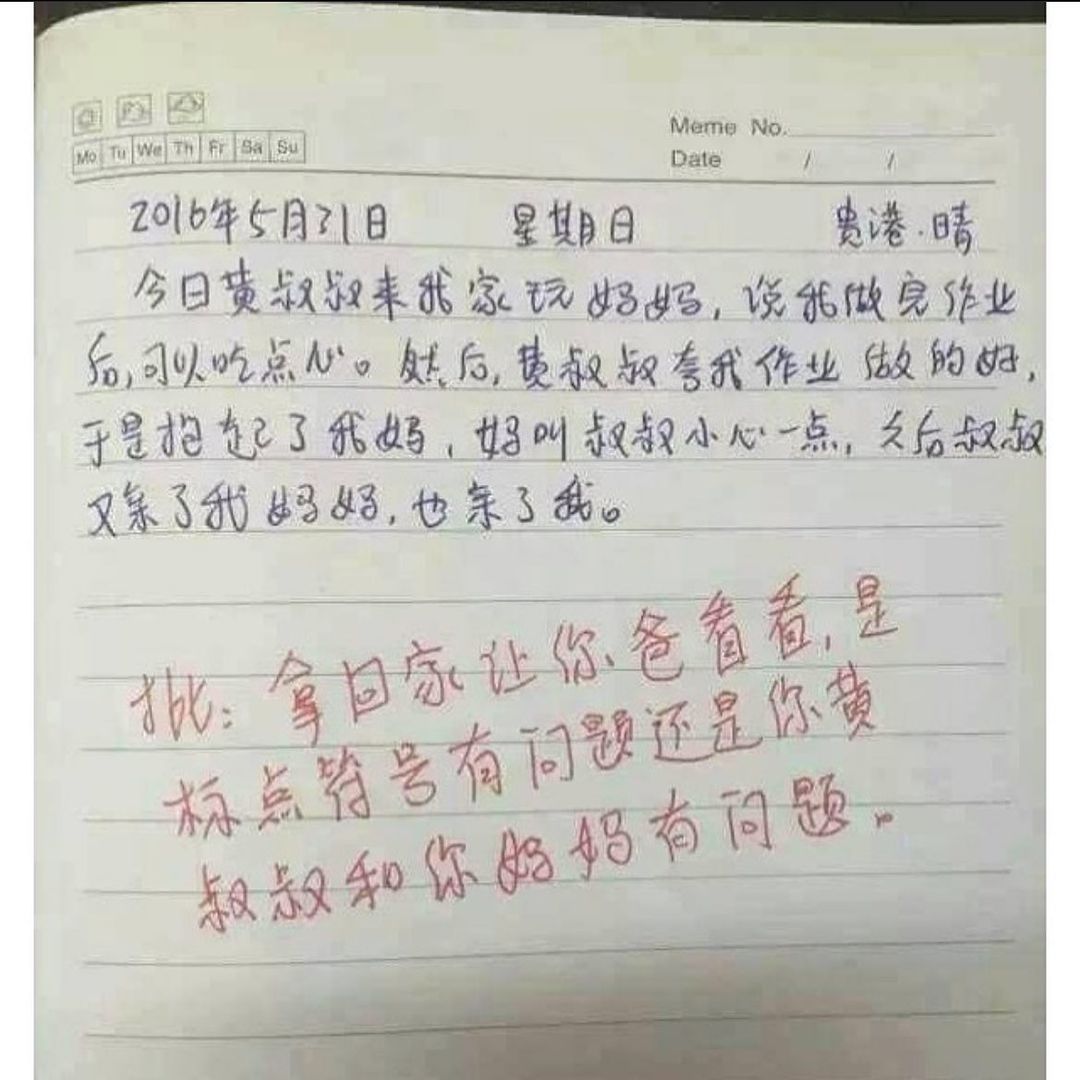 Meme No.
Date / /
Mo Tu We Th Fr Sa Su
2016年5月31日 星期日 贵港·晴
今日黄叔叔来我家玩妈妈,说我做完作业
后,可以吃点心。然后,黄叔叔夸我作业做的好,
于是抱起了我妈,妈叫叔叔小心一点,之后叔叔
又亲了我妈妈,也亲了我。
批:拿回家让你爸看看,是
标点符号有问题还是你黄
叔叔和你妈妈有问题。